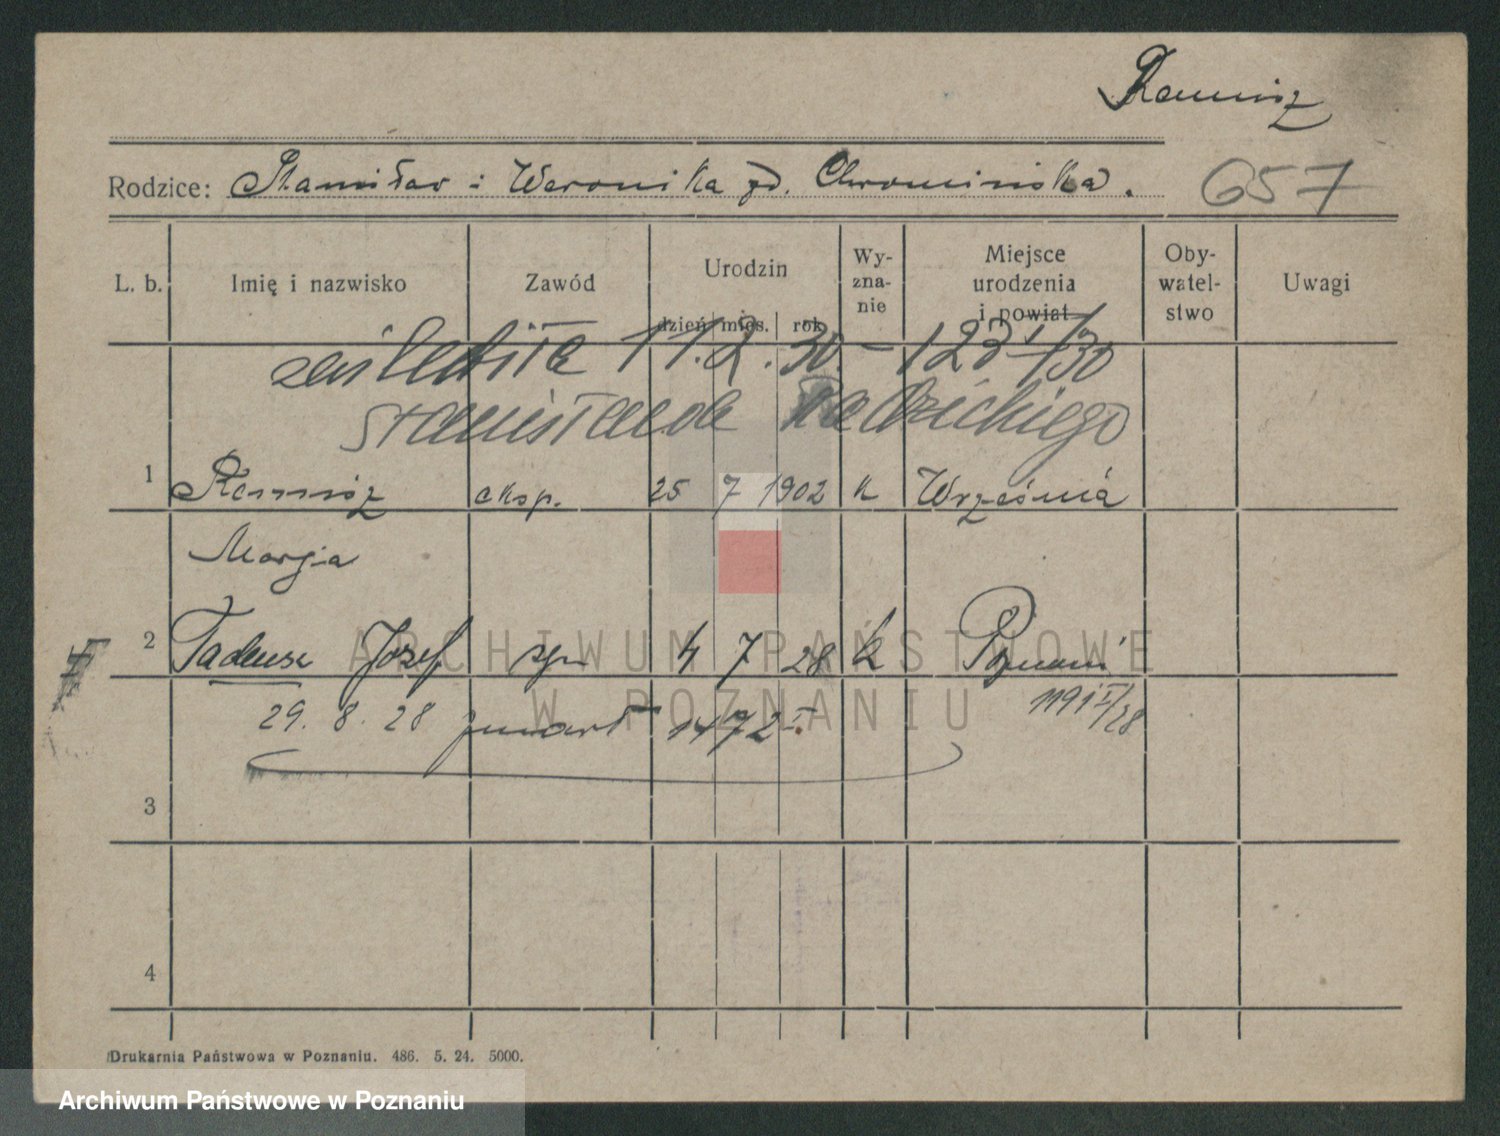 Remisz
Rodzice: Stanisław i Weronika zd. Chromińska.
657
L. b. Imię i nazwisko Zawód Urodzin dzień mies. rok Wy-zna-nie Miejsce urodzenia i powiat Oby-watel-stwo Uwagi
zaślubiła 11.2.30 – 123 I/30
Stanisława Radzickiego
1 Remisz eksp. 25 7 1902 k Września
Marja
2 Tadeusz Józef syn 4 7 28 k Poznań
29. 8. 28 zmarł 1472 I. 1191 I/28
3
4
Drukarnia Państwowa w Poznaniu. 486. 5. 24. 5000.
ARCHIWUM PAŃSTWOWE
W POZNANIU
Archiwum Państwowe w Poznaniu